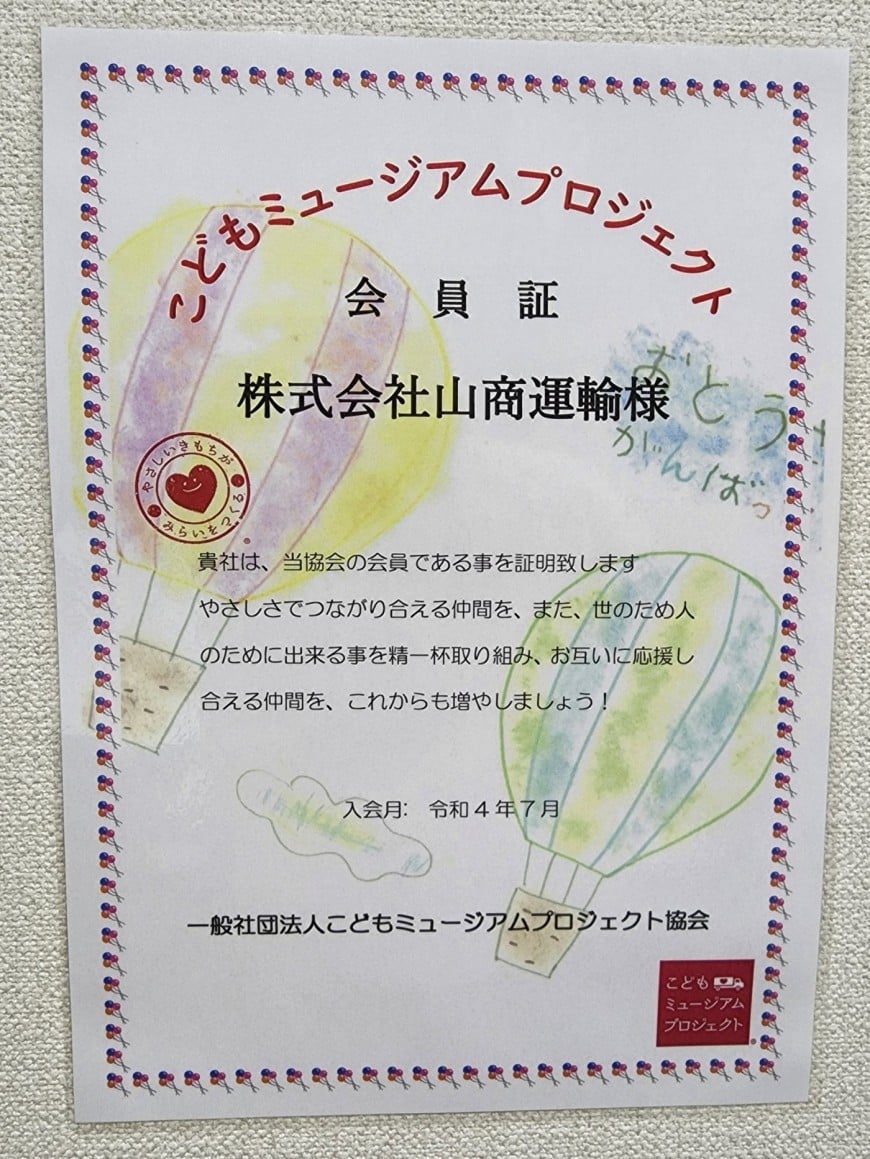 こどもミュージアムプロジェクト
会員証
株式会社山商運輸様
おとうさ
がんばっ
やさしいきもちが
みらいをつくる
貴社は、当協会の会員である事を証明致します
やさしさでつながり合える仲間を、また、世のため人
のために出来る事を精一杯取り組み、お互いに応援し
合える仲間を、これからも増やしましょう！
入会月: 令和4年7月
一般社団法人こどもミュージアムプロジェクト協会
こども
ミュージアム
プロジェクト